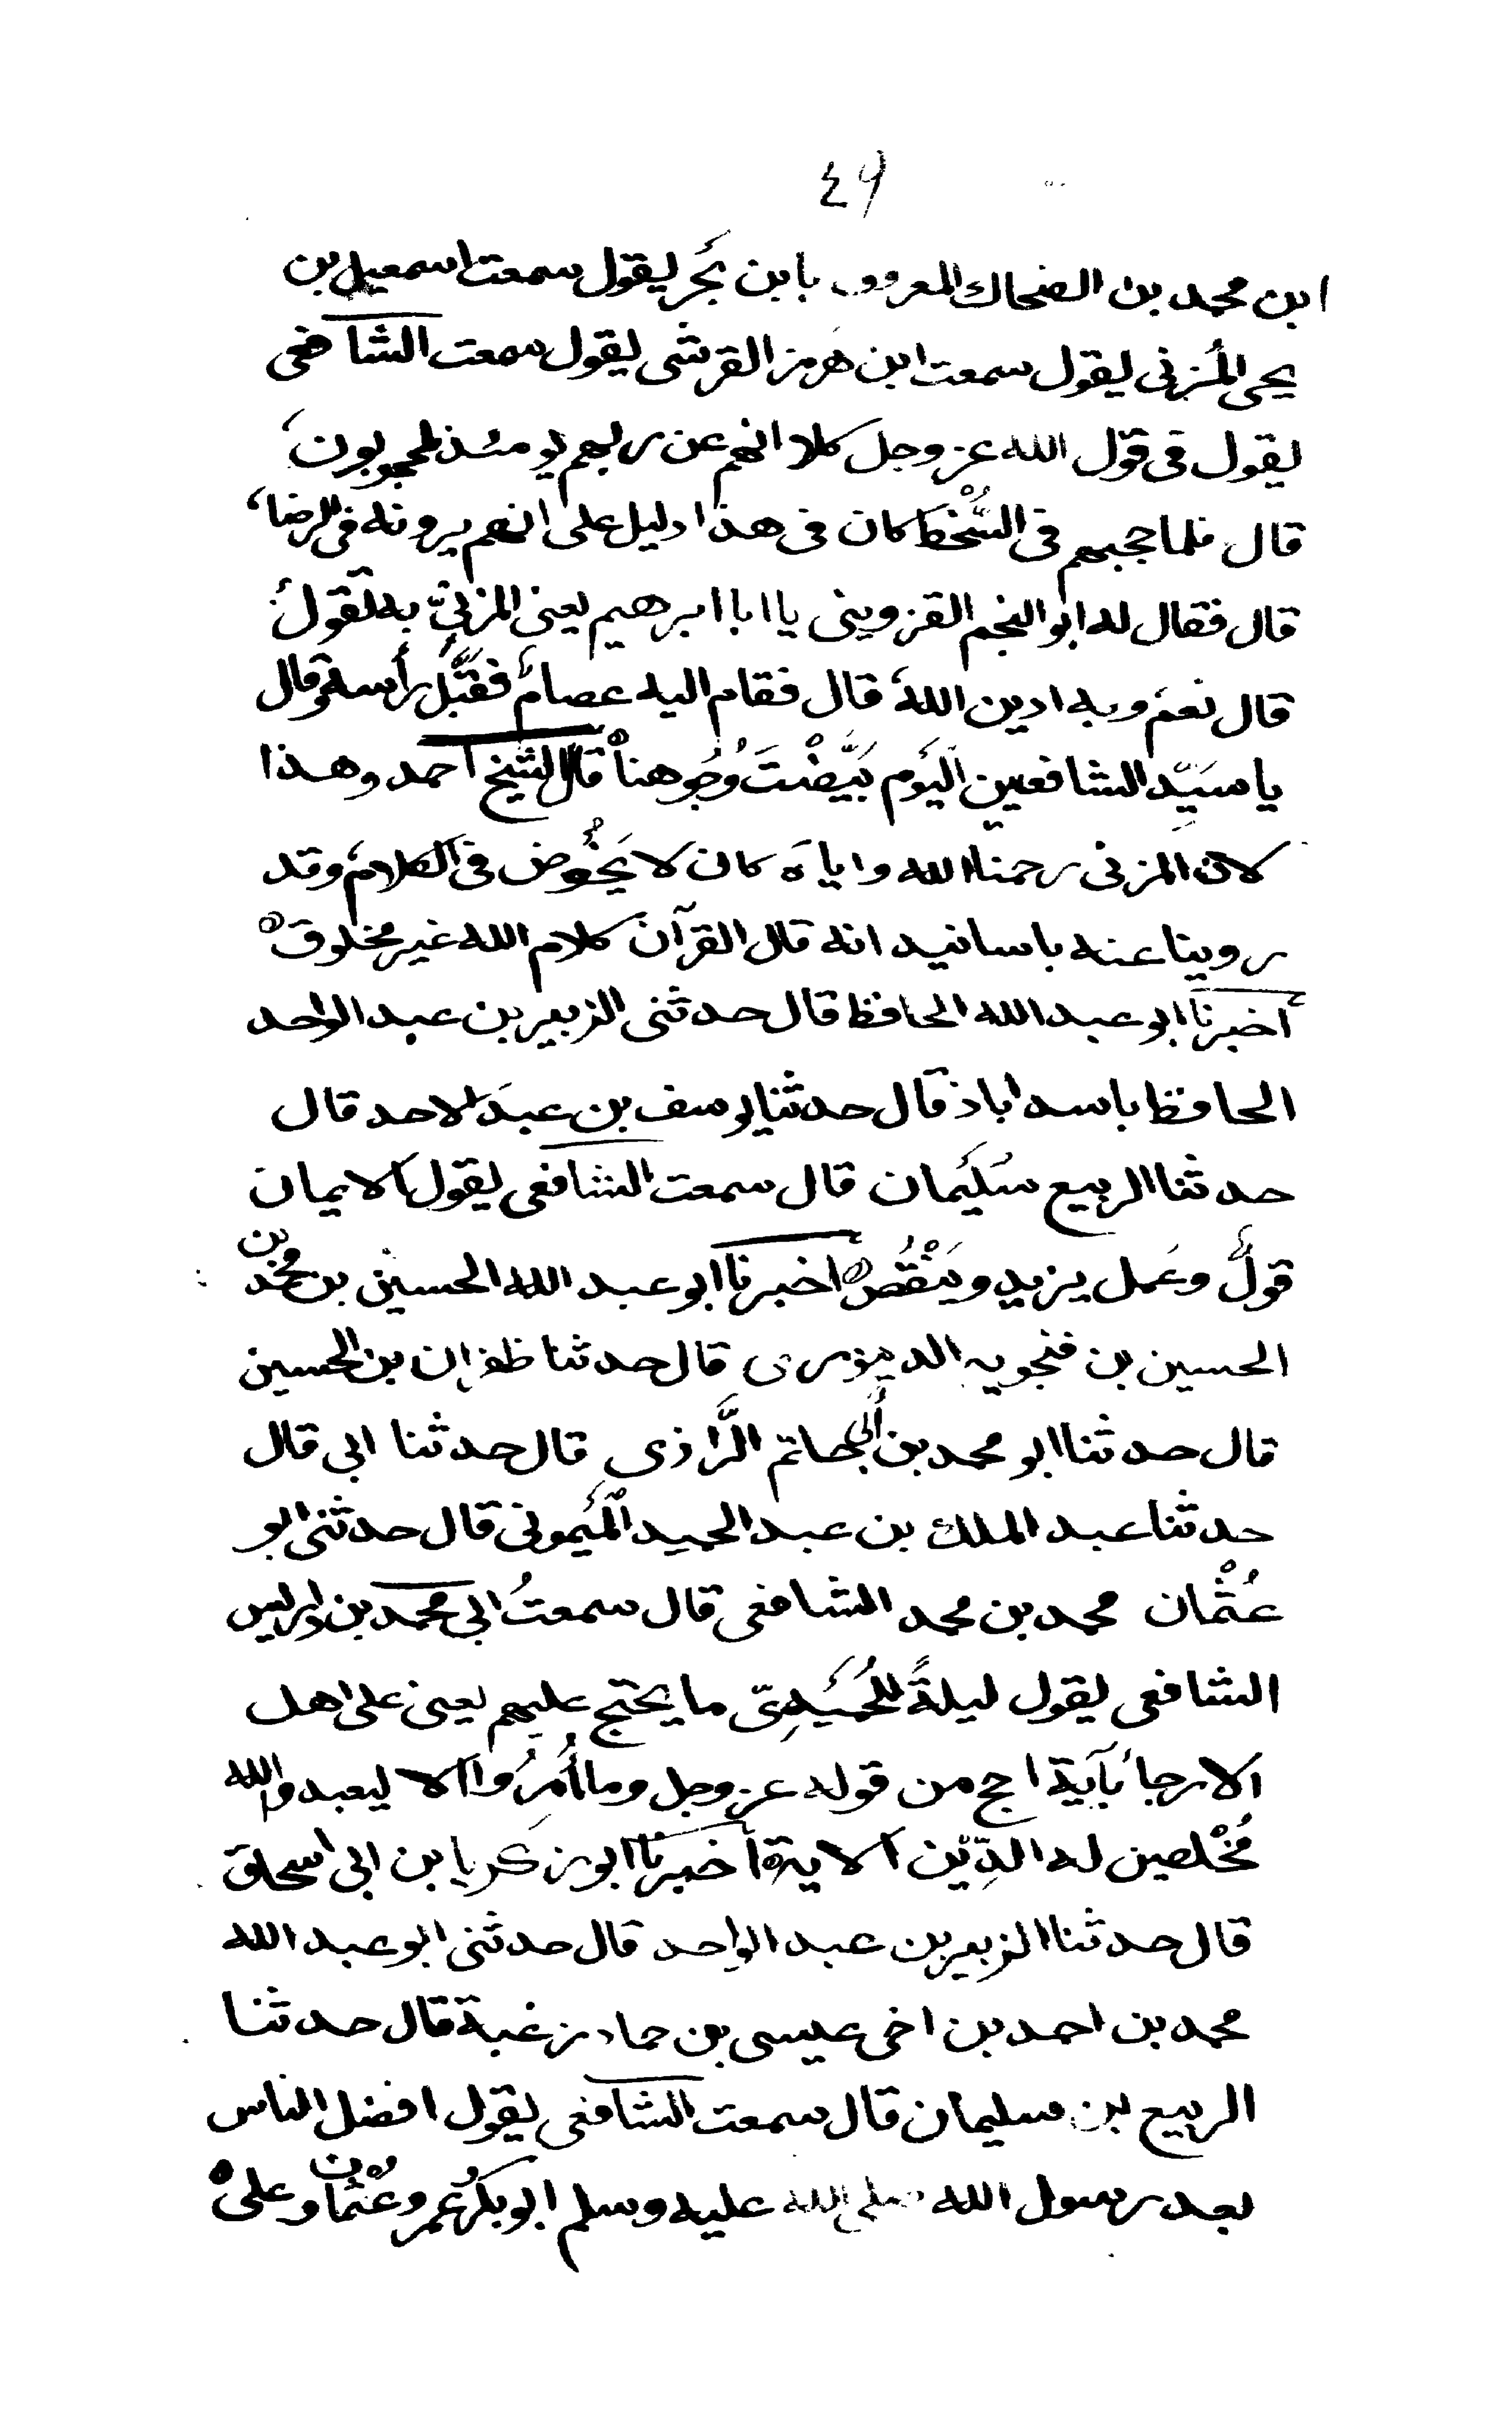 ٤٩
ابن محمد بن الضحاك المعروف بابن بَحْر يقول سمعت اسمعيل بن
يحيى المُزني يقول سمعت ابن هَرمز القرشى يقول سمعت الشافعى
يقول فى قول الله عز وجل كلا انهم عن ربهم يومئذ لمحجوبون
قال فلما حجبهم فى السُّخْط كان فى هذا دليل على انهم يرونه فى الرضا
قال فقال له ابو النجم القزوينى يا ابا ابرهيم يعنى المزنيّ به تقولُ
قال نعم وبه ادين اللهَ قال فقام اليه عصامٌ فقبَّل رأسه وقال
يا سَيِّد الشافعين اليَوم بَيَّضْتَ وُجُوهنا قال الشيخ احمد وهذا
لان المزنى رحمنا الله واياه كان لا يَخُوض فى الكلام وقد
روينا عنه باسانيد انه قال القرآن كلام الله غير مخلوق
أخبرنا ابو عبد الله الحافظ قال حدثنى الزبير بن عبد الواحد
الحافظ باسداباذ قال حدثنا يوسف بن عبد الاحد قال
حدثنا الربيع سُلَيمان قال سمعت الشافعى يقول الايمان
قولٌ وعَمل يزيد ويَنْقُص أخبرنا ابو عبد الله الحسين بن محمد بن
الحسين بن فنجويه الدينورى قال حدثنا ظفران بن الحسين
قال حدثنا ابو محمد بن أبى حاتم الرَّازى قال حدثنا ابى قال
حدثنا عبد الملك بن عبد الحميد المَيْمونى قال حدثنى ابو
عُثْمان محمد بن محمد الشافعى قال سمعتُ ابى محمد بن ادريس
الشافعى يقول ليلةً للحُمَيدِىّ ما يحتج عليهم يعنى على اهل
الارجاء بآية احج من قوله عز وجل وما أُمِرُوا الا ليعبدوا الله
مُخْلصين له الدِّين الاية أخبرنا ابو زكريا بن ابى اسحاق
قال حدثنا الزبير بن عبد الواحد قال حدثنى ابو عبد الله
محمد بن احمد بن اخى عيسى بن حماد زغبة قال حدثنا
الربيع بن سليمان قال سمعت الشافعى يقول افضل الناس
بعد رسول الله صلى الله عليه وسلم ابو بكر وعُمر وعُثْمان وعلى